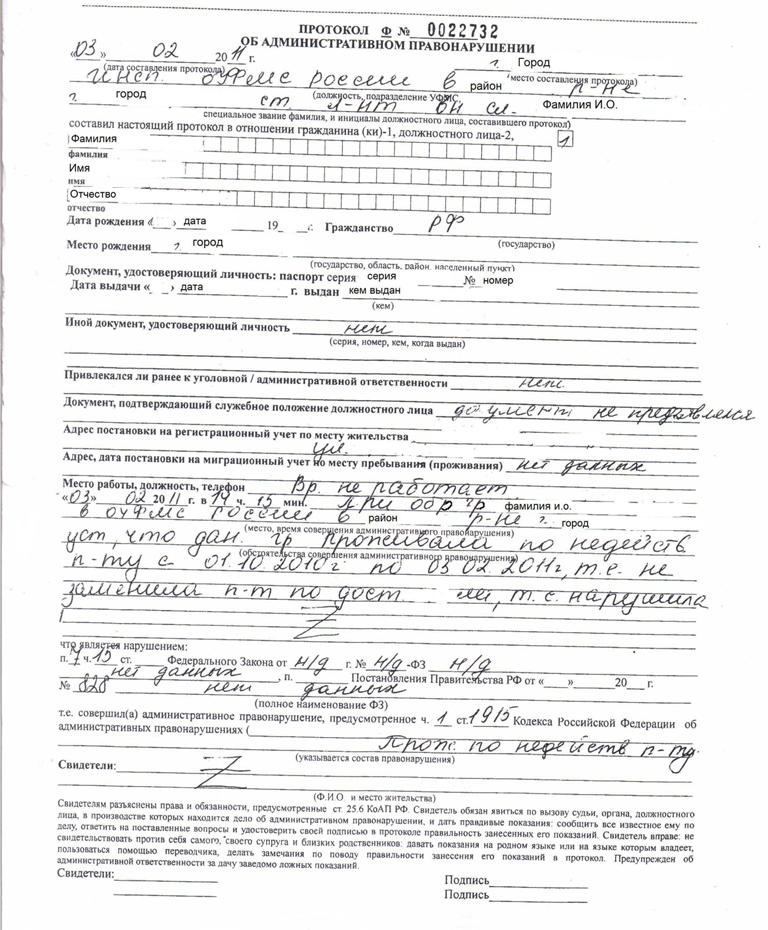 ПРОТОКОЛ Ф № 0022732
ОБ АДМИНИСТРАТИВНОМ ПРАВОНАРУШЕНИИ
«03» 02 2011 г. г. Город
(дата составления протокола) место составления протокола)
Инсп. ОУФМС России в район р-не
(должность, подразделение УФМС
г. город ст. л-нт вн сл. Фамилия И.О.
специальное звание фамилия, и инициалы должностного лица, составившего протокол)
составил настоящий протокол в отношении гражданина (ки)-1, должностного лица-2, 1
Фамилия
фамилия
Имя
имя
Отчество
отчество
Дата рождения « » дата 19 г. Гражданство РФ
(государство)
Место рождения г. город
(государство, область, район, населенный пункт)
Документ, удостоверяющий личность: паспорт серия серия № номер
Дата выдачи « » дата г. выдан кем выдан
(кем)
Иной документ, удостоверяющий личность нет
(серия, номер, кем, когда выдан)
Привлекался ли ранее к уголовной / административной ответственности нет
Документ, подтверждающий служебное положение должностного лица документ не предъявлялся
Адрес постановки на регистрационный учет по месту жительства
ул.
Адрес, дата постановки на миграционный учет по месту пребывания (проживания) нет данных
Место работы, должность, телефон Вр. не работает
«03» 02 2011 г. в 14 ч. 15 мин. при обр гр фамилия и.о.
в ОУФМС России в район р-не г. город
(место, время совершения административного правонарушения)
уст, что дан. гр проживала по недейств
(обстоятельства совершения административного правонарушения)
п-ту с 01.10.2010г по 03 02 2011г, т.е. не
заменила п-т по дост. лет, т.е. нарушила
что является нарушением:
п. 7 ч. 15 ст. Федерального Закона от н/д г. № н/д -ФЗ н/д
нет данных , п. Постановления Правительства РФ от « » 20 г.
№ 828 нет данных
(полное наименование ФЗ)
т.е. совершил(а) административное правонарушение, предусмотренное ч. 1 ст. 1915 Кодекса Российской Федерации об
административных правонарушениях (
Прож. по недейств п-ту.
(указывается состав правонарушения)
Свидетели:
(Ф.И.О. и место жительства)
Свидетелям разъяснены права и обязанности, предусмотренные ст. 25.6 КоАП РФ. Свидетель обязан явиться по вызову судьи, органа, должностного
лица, в производстве которых находится дело об административном правонарушении, и дать правдивые показания: сообщить все известное ему по
делу, ответить на поставленные вопросы и удостоверить своей подписью в протоколе правильность занесенных его показаний. Свидетель вправе: не
свидетельствовать против себя самого, своего супруга и близких родственников: давать показания на родном языке или на языке которым владеет,
пользоваться помощью переводчика, делать замечания по поводу правильности занесения его показаний в протокол. Предупрежден об
административной ответственности за дачу заведомо ложных показаний.
Свидетели: Подпись
Подпись